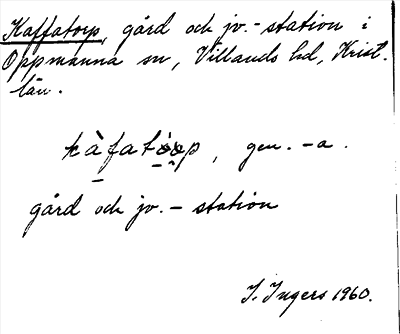 Kaffatorp, gård och jv.-station i
Oppmanna sn, Villands hd, Krist.
län.
kàfatò̤o̤p, gen. -a.
gård och jv.- station
I. Ingers 1960.